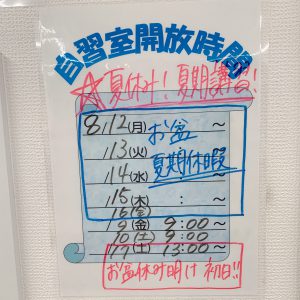 自習室開放時間
☆夏休み!夏期講習!
8/12(月) お盆 ~
13(火) 夏期休暇 ~
14(水) ~
15(木) : ~
16(金)
9(金) 9:00~
10(土) 9:00~
17(土) 13:00~
お盆休み明け初日!!